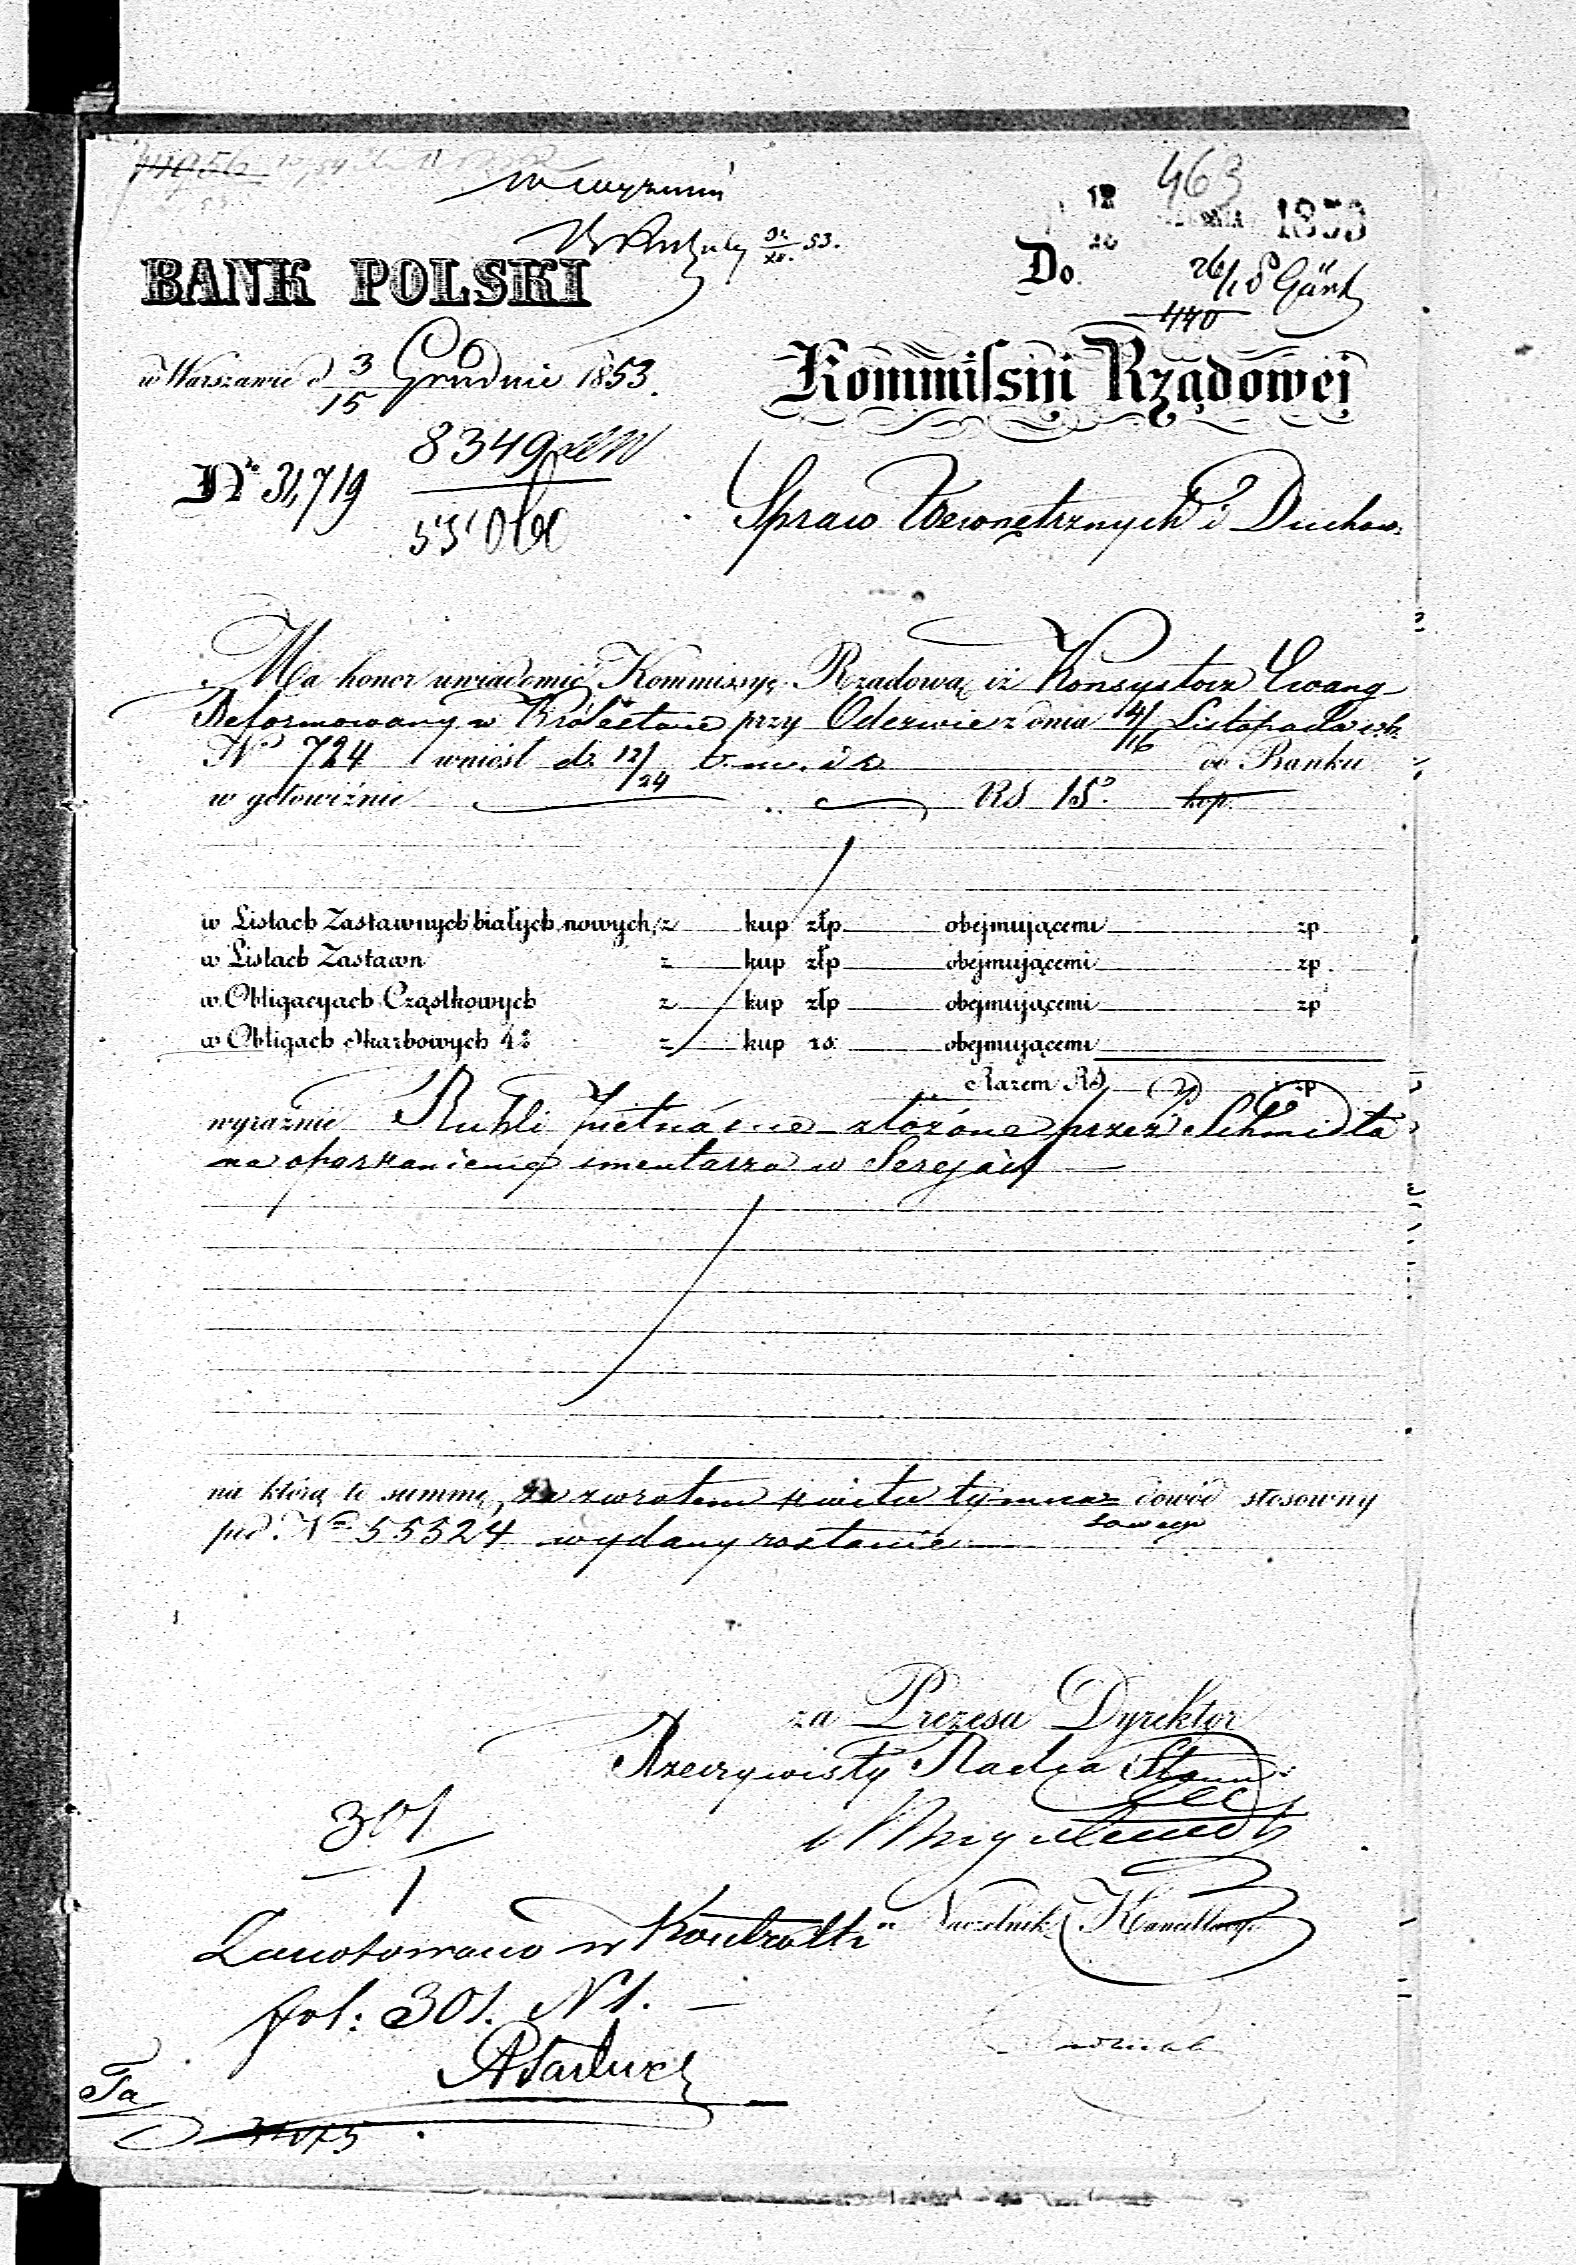 463
12
1853
20
26/18 Gärt
440
53.
BANK POLSKI
Do
w Warszawie d 3/15 Grudnia 1853.
Kommissyi Rządowej
8349
No 31,719
Spraw Wewnętrznych i Duchow:
Ma honor uwiadomić Kommissyę Rządową iż Konsystorz Ewang
Reformowany w Królestwie przy Odezwie z dnia 14/16 Listopada r. b.
No 724 wniósł d. 12/24 t. m. i r. do Banku
w gotowiźnie RS 15. kop.
w Listach Zastawnych białych nowych, z kup złp obejmującemi zp
w Listach Zastawn z kup złp obejmującemi zp.
w Obligacyach Cząstkowych z kup złp obejmującemi zp
w Obligach Skarbowych 4% z kup rs. obejmującemi
Razem RS
wyraźnie Rubli piętnaście złożone przez Schmidta
na oparkanienie smentarza w Serejach
na którą to summę, za zwrotem kwitu tymcza= dowód stosowny
sowego
pod No 55324 wydany zostanie
za Prezesa Dyrektor
Rzeczywisty Radca Stanu
301
1
Naczelnik Kancellaryi
Zanotowano w Kontrolli
fol: 301. N 1.
Ta